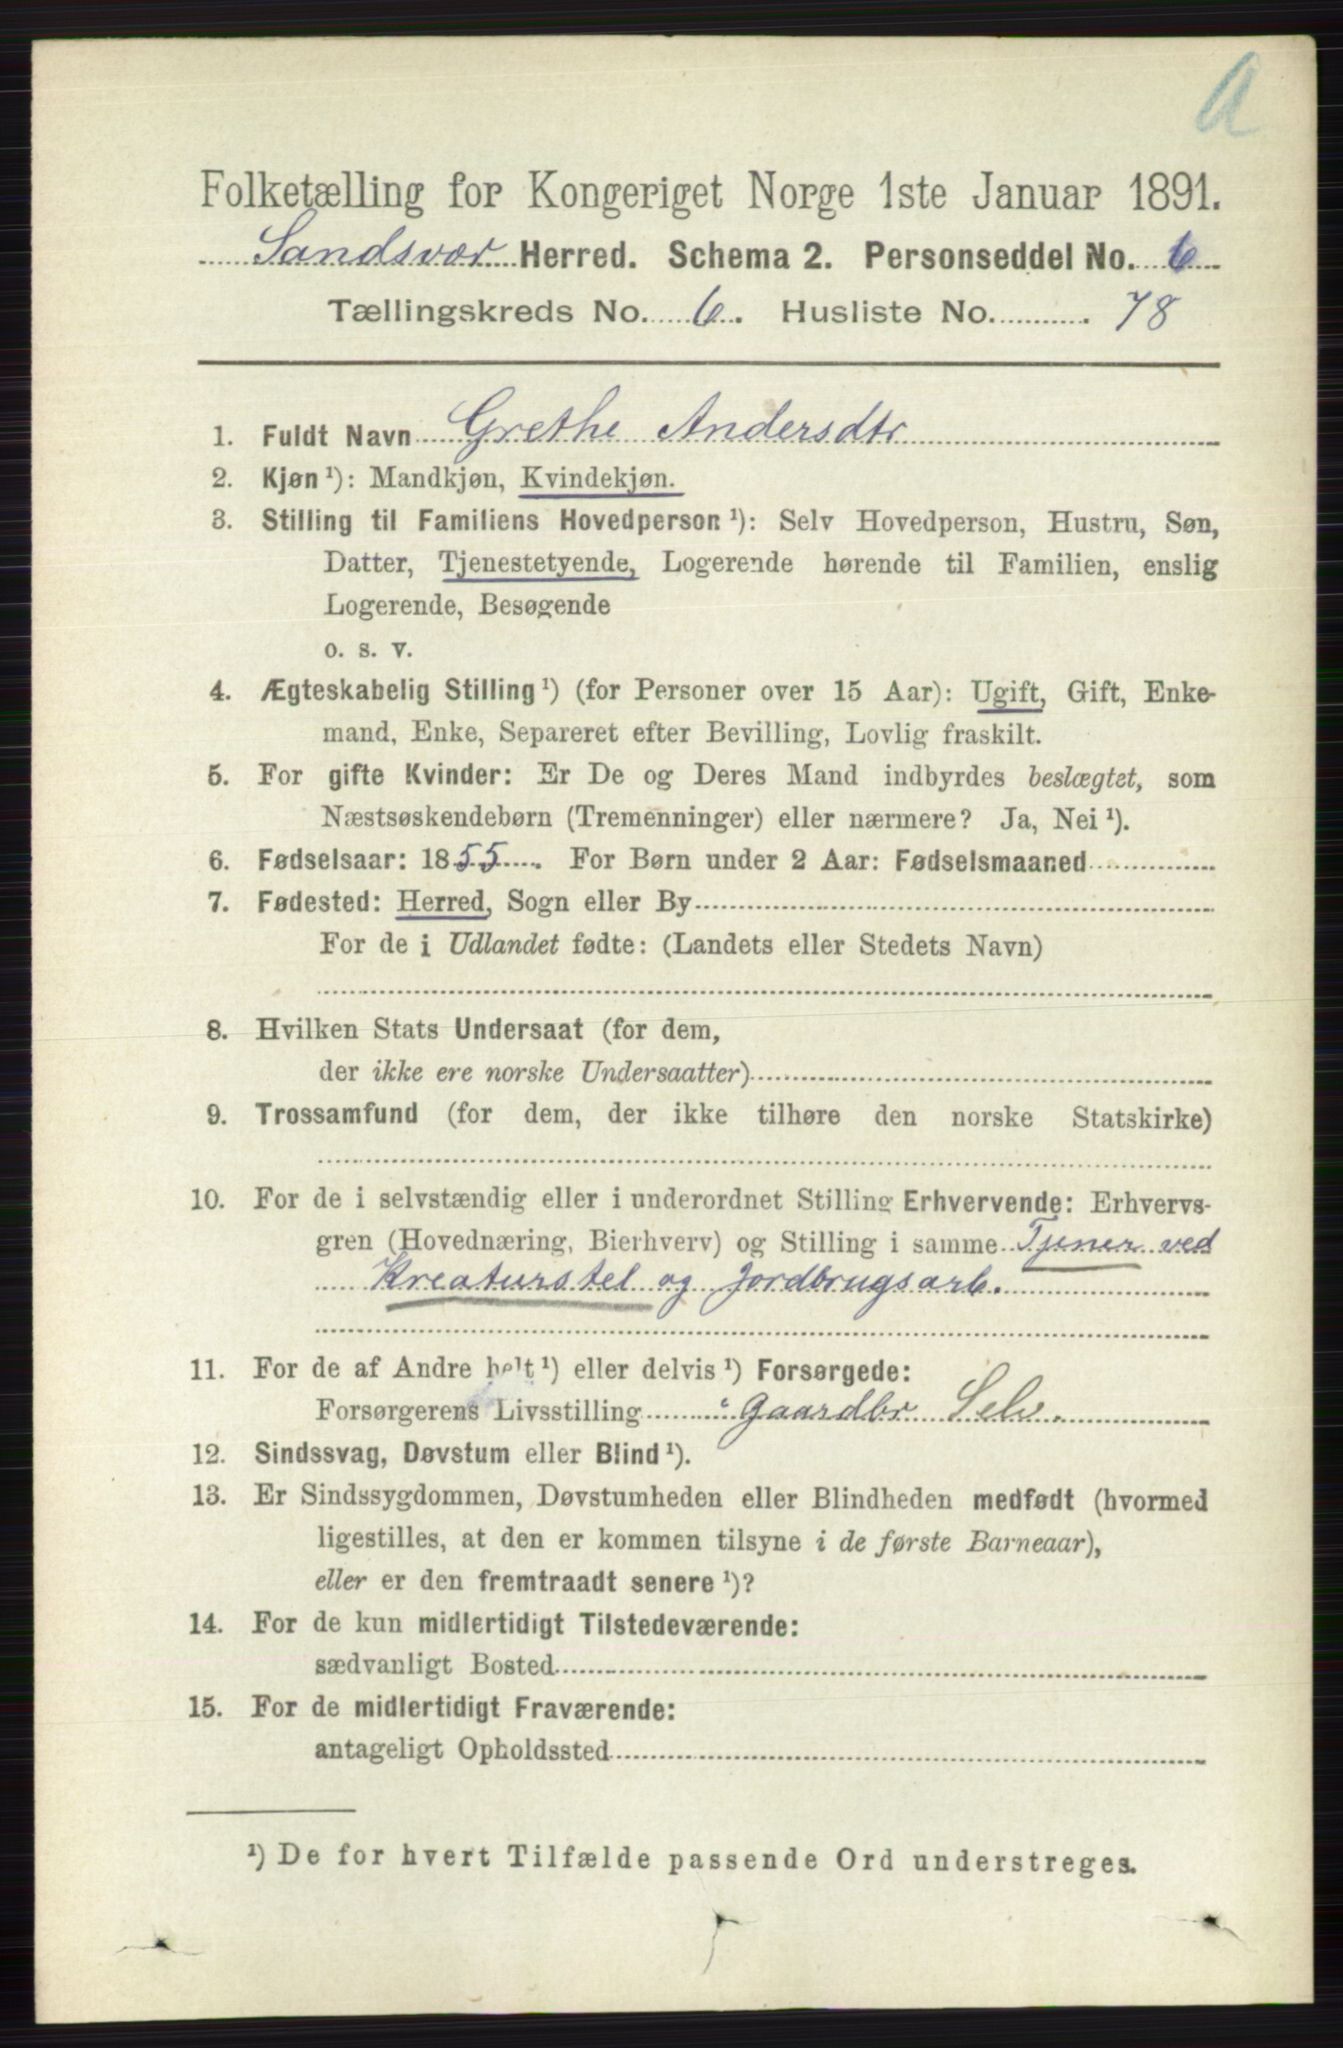 A
Folketælling for Kongeriget Norge 1ste Januar 1891.
Sandsvær Herred. Schema 2. Personseddel No. 6
Tællingskreds No. 6. Husliste No. 78
1. Fuldt Navn Grethe Andersdtr
2. Kjøn ¹): Mandkjøn, Kvindekjøn.
3. Stilling til Familiens Hovedperson ¹): Selv Hovedperson, Hustru, Søn,
Datter, Tjenestetyende, Logerende hørende til Familien, enslig
Logerende, Besøgende
o. s. v.
4. Ægteskabelig Stilling ¹) (for Personer over 15 Aar): Ugift, Gift, Enke-
mand, Enke, Separeret efter Bevilling, Lovlig fraskilt.
5. For gifte Kvinder: Er De og Deres Mand indbyrdes beslægtet, som
Næstsøskendebørn (Tremenninger) eller nærmere? Ja, Nei ¹).
6. Fødselsaar: 1855. For Børn under 2 Aar: Fødselsmaaned
7. Fødested: Herred, Sogn eller By
For de i Udlandet fødte: (Landets eller Stedets Navn)
8. Hvilken Stats Undersaat (for dem,
der ikke ere norske Undersaatter)
9. Trossamfund (for dem, der ikke tilhøre den norske Statskirke)
10. For de i selvstændig eller i underordnet Stilling Erhvervende: Erhvervs-
gren (Hovednæring, Bierhverv) og Stilling i samme Tjener ved
Kreaturstel og Jordbrugsarb.
11. For de af Andre helt ¹) eller delvis ¹) Forsørgede:
Forsørgerens Livsstilling Gaardbr Selv.
12. Sindssvag, Døvstum eller Blind ¹).
13. Er Sindssygdommen, Døvstumheden eller Blindheden medfødt (hvormed
ligestilles, at den er kommen tilsyne i de første Barneaar),
eller er den fremtraadt senere ¹)?
14. For de kun midlertidigt Tilstedeværende:
sædvanligt Bosted
15. For de midlertidigt Fraværende:
antageligt Opholdssted
¹) De for hvert Tilfælde passende Ord understreges.